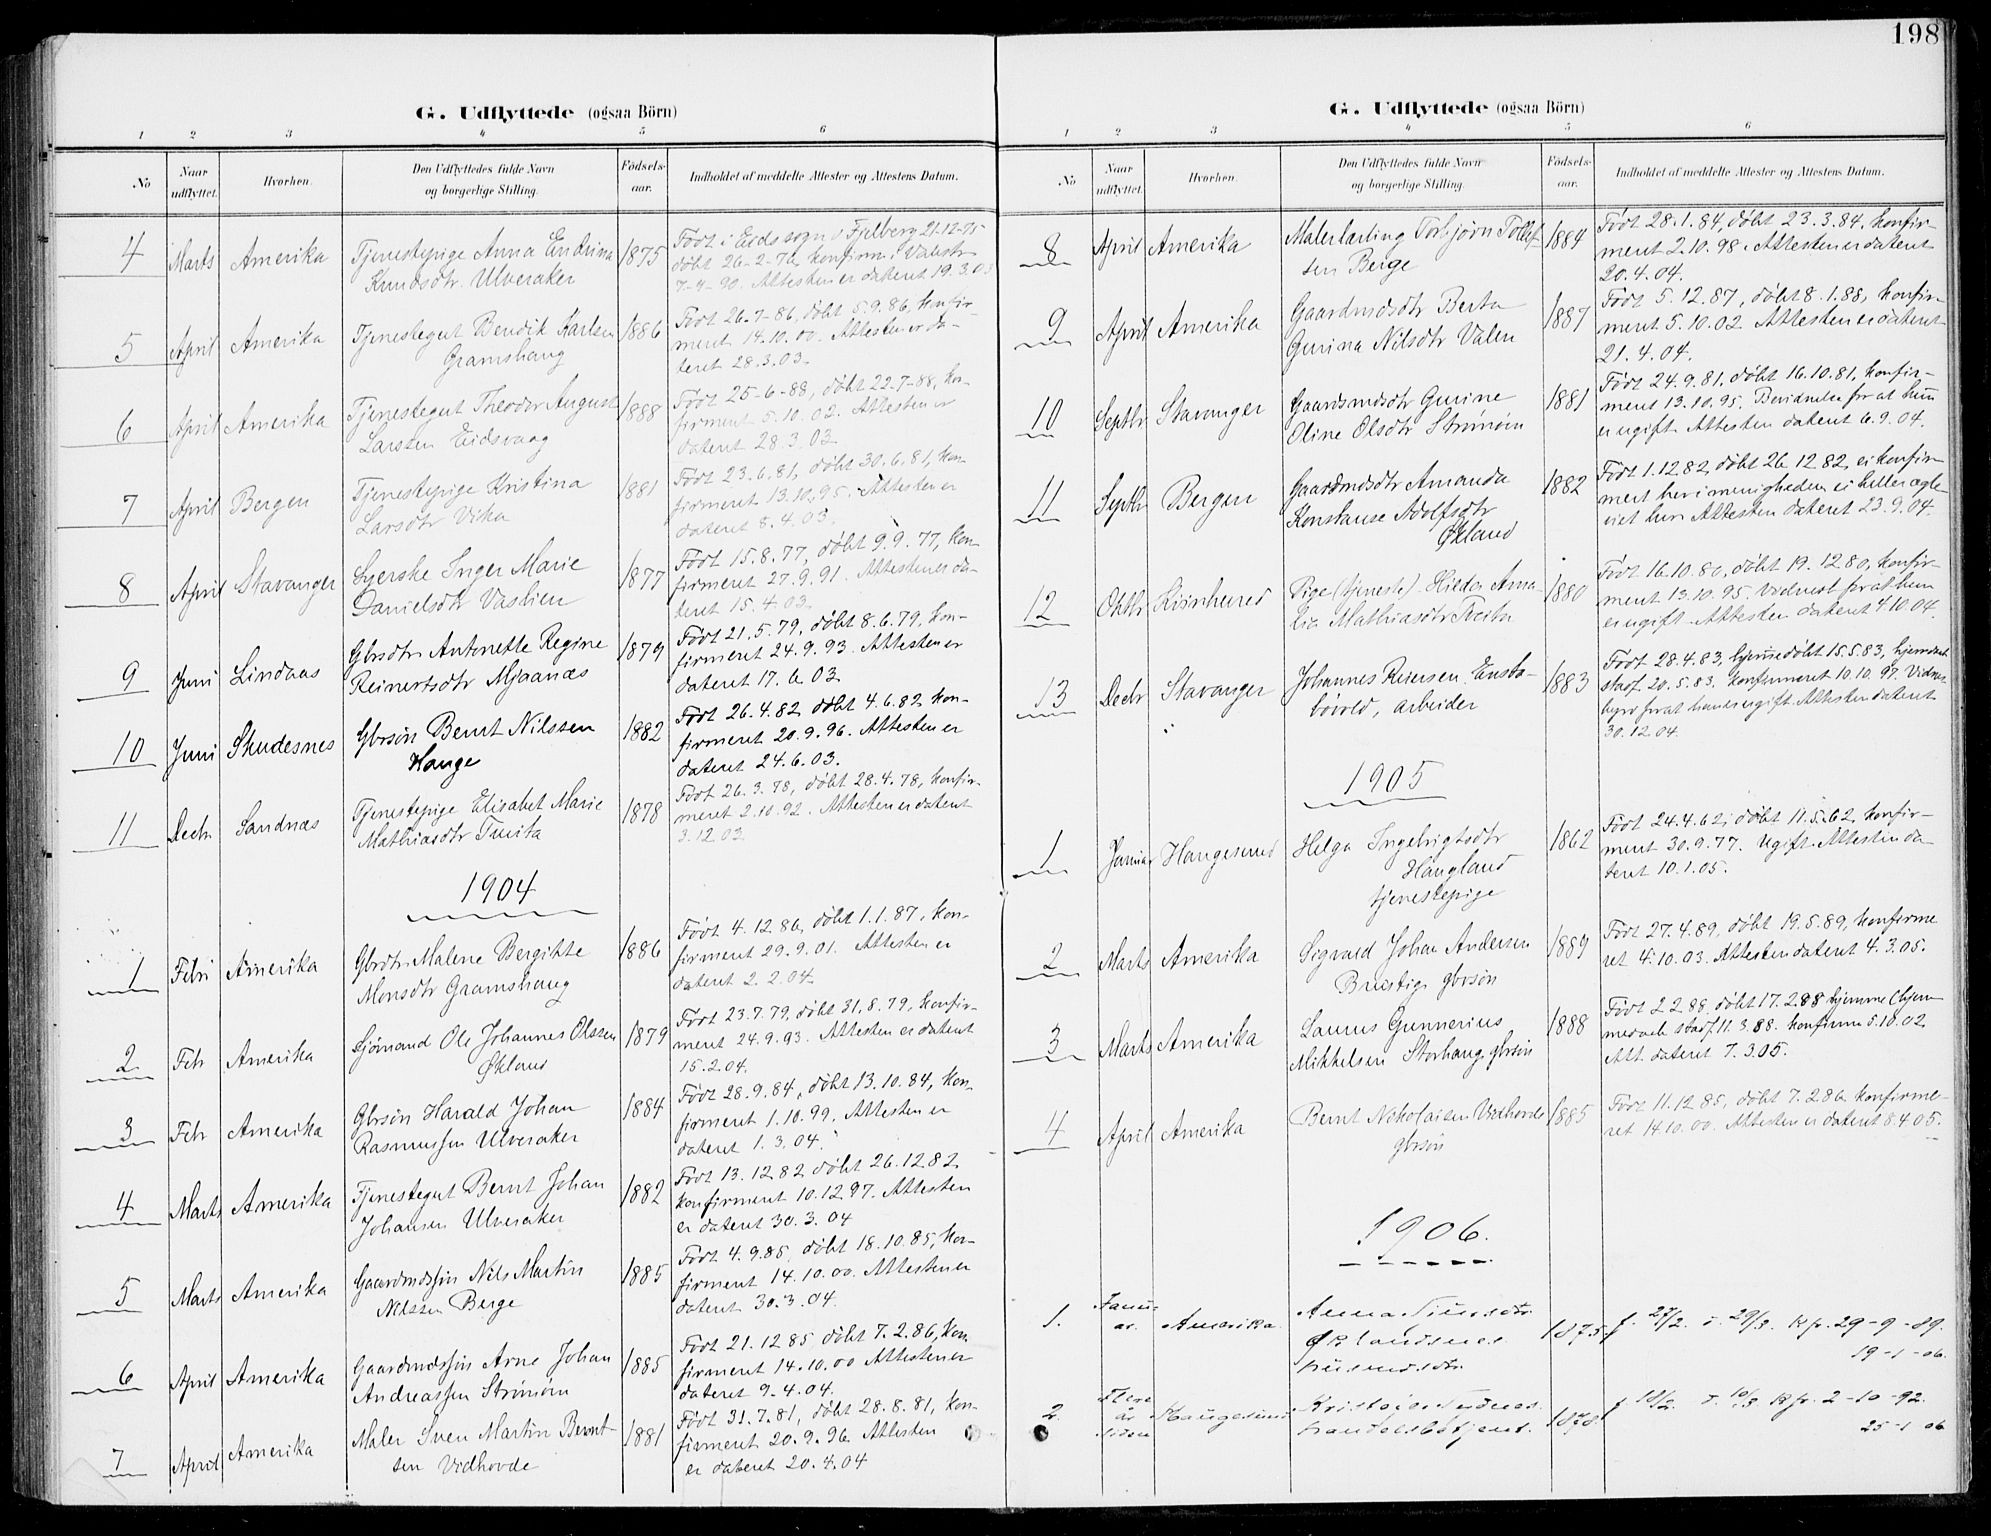 198
G. Udflyttede (ogsaa Börn)
1 2 3 4 5 6
No
Naar udflyttet.
Hvorhen.
Den Udflyttedes fulde Navn
og borgerlige Stilling.
Födsels-
aar.
Indholdet af meddelte Attester og Attestens Datum.
4 Marts Amerika Tjenestepige Anna Endrina 1875 Født i Eids sogn i Fjelberg 21-12-75
Knudsdtr Ulveraker døbt 26-2-76, konfirm. i Valestr.
7-9-90. Attesten er dateret 19.3.03
5 April Amerika Tjenestegut Bendik Karlsen 1886 Født 26.7.86, døbt 5.9.86, konfir-
Gramshaug ment 14.10.00. Attesten er da-
teret 28.3.03.
6 April Amerika Tjenestegut Theodor August 1888 Født 25-6-88, døbt 22.7-88, kon-
Larsen Eidsvaag firment 5.10.02. Attesten er
dateret 28.3.03.
7 April Bergen Tjenestepige Kristina 1881 Født 23.6.81, døbt 30.6.81, kon-
Larsdtr Vika firmeret 13.10.95. Attesten er
dateret 8.4.03.
8 April Stavanger Syerske Inger Marie 1877 Født 15.8.77, døbt 9.9.77, kon-
Danielsdtr Vaslien firmeret 27.9.91. Attesten er da-
teret 15.4.03.
9 Juni Lindaas Gbrsdtr Antonette Regine 1879 Født 21.5.79, døbt 8.6.79, kon-
Reinertsdtr Mjaanæs firmeret 24.9.93. Attesten er
dateret 17.6.03
10 Juni Skudesnes Gbrsøn Bernt Nilssen 1882 Født 26.4.82 døbt 4.6.82 kon-
Hauge firmeret 20.9.96. Attesten er
dateret 24.6.03.
11 Decbr Sandnæs Tjenestepige Elisabet Marie 1878 Født 26.3.78, døbt 28.4.78, konfir-
Mathiasdtr Tveita meret 2.10.92. Attesten er dateret
3.12.03.
1904
1 Febr Amerika Gbrdtr Malene Bergitte 1886 Født 4.12.86, døbt 1.1.87, kon-
Monsdtr Gramshaug firmeret 29.9.01. Attesten er
dateret 2.2.04.
2 Febr Amerika Sjømand Ole Johannes Olssen 1879 Født 23.7.79, døbt 31.8.79, konfir-
Økland ment 24.9.93. Attesten er dateret
15.2.04.
3 Febr Amerika Gbrsøn Harald Johan 1884 Født 28.9.84, døbt 13.10.84, kon-
Rasmussen Ulveraker firmeret 1.10.99. Attesten er
dateret 1.3.04.
4 Marts Amerika Tjenestegut Bernt Johan 1882 Født 13.12.82 døbt 26.12.82
Johansen Ulveraker konfirmeret 10.12.97. Attesten
er dateret 30.3.04
5 Marts Amerika Gaardmdssøn Nils Martin 1885 Født 4.9.85, døbt 18.10.85, kon-
Nilssen Berge firmeret 14.10.00. Attesten er
dateret 30.3.04.
6 April Amerika Gaardmdssøn Arne Johan 1885 Født 21.12.85, døbt 7.2.86, kon
Andreassen Strømøm firmeret 14.10.00 Attesten er
dateret 9.4.04.
7 April Amerika Maler Sven Martin Bernt- 1881 Født 31.7.81, døbt 28.8.81, kon-
sen Vidhovde firmeret 20.9.96 Attesten
er dateret 20.4.04
G. Udflyttede (ogsaa Börn)
1 2 3 4 5 6
No
Naar
udflyttet.
Hvorhen.
Den Udflyttedes fulde Navn
og borgerlige Stilling.
Födsels-
aar.
Indholdet af meddelte Attester og Attestens Datum.
8 April Amerika Malerlærling Torbjørn Tollef- 1884 Født 28.1.84, døbt 23.3.84, konfir-
sen Berge ment 2.10.98. Attesten er dateret
20.4.04.
9 April Amerika Gaardmdsdtr Berta 1887 Født 5.12.87, døbt 8.1.88, konfir-
Gurina Nilsdtr Valen meret 5.10.02. Attesten er dateret
21.4.04.
10 Septbr Stavanger Gaardsmdsdtr Gurine 1881 Født 24.9.81, døbt 16.10.81, konfir-
Oline Olsdtr Strømøm meret 13.10.95. for at hun
er ugift. Attesten dateret 6.9.04.
11 Septbr Bergen Gaardmdsdtr Amanda 1882 Født 1.12.82, døbt 26.12.82, ei konfir-
Konstanse Adolfsdtr mert her i menigheden, ei heller ægte-
Økland viet her. Attesten dateret 23.9.04.
12 Oktbr Kvinherred Pige (tjeneste) Hilda Ama- 1880 Født 16.10.80, døbt 19.12.80, konfir-
lia Mathiasdtr Tveita ment 13.10.95. Vidnesb for at hun
er ugift. Attesten dateret 4.10.04.
13 Decbr Stavanger Johannes Reiersen 1883 Født 28.4.83, hjemmedøbt 15.5.83, hjemdaab
arbeider stadf. 20.5.83. konfirmeret 10.10.97. Vidnes-
byrd for at han er ugift. Attesten dateret
30.12.04.
1905
1 Januar Haugesund Helga Ingebrigtsdtr 1862 Født 24.4.62, døbt 11.5.62, konfir-
Haugland ment 30.9.77. Ugift. Attesten da-
tjenestepige teret 10.1.05.
2 Marts Amerika Sigvald Johan Andersen 1889 Født 27.4.89, døbt 19.5.89, konfirme
gbrsøn ret 4.10.03. Attesten dateret 4.3.05.
3 Marts Amerika Laurus Gunnerius 1888 Født 2.2.88, døbt 17.2.88 hjemme (hjem-
Mikkelsen Storhaug, gbrsøn medaab stadf. 11.3.88. konfirm. 5.10.02.
Att. dateret 7.3.05.
4 April Amerika Bernt Nikolaisen Vidhovde 1885 Født 11.12.85, døbt 7.2.86, konfirme-
gbrsøn ret 14.10.00. Attesten er dateret 8.4.05.
1906.
1. Janu- Amerika. Anna 1875 f. 27/2. d. 29/3. kfr. 29-9-89.
ar. Øklandsnes 19-1-06.
husmdsdtr.
2. Flere Haugesund Kristofer 1878 f 18/2. d. 10/3 kfr. 2-10-92.
år handelsbetjent. 25-1-06
siden